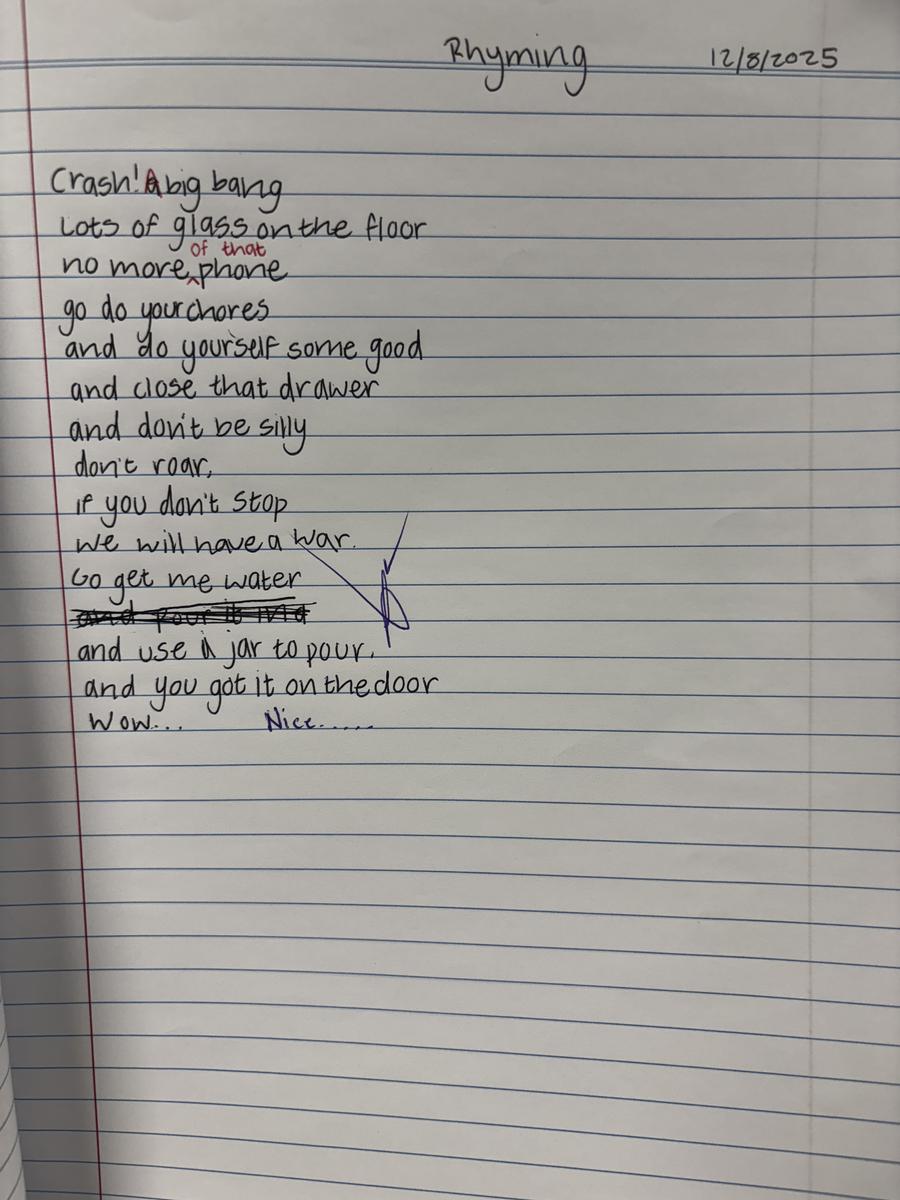 Rhyming 12/8/2025
Crash! A big bang
Lots of glass on the floor
of that
no more phone
go do your chores
and do yourself some good
and close that drawer
and don't be silly
don't roar,
if you don't stop
we will have a war.
Go get me water
and pour it in a
and use a jar to pour.
and you got it on the door
Wow... Nice......